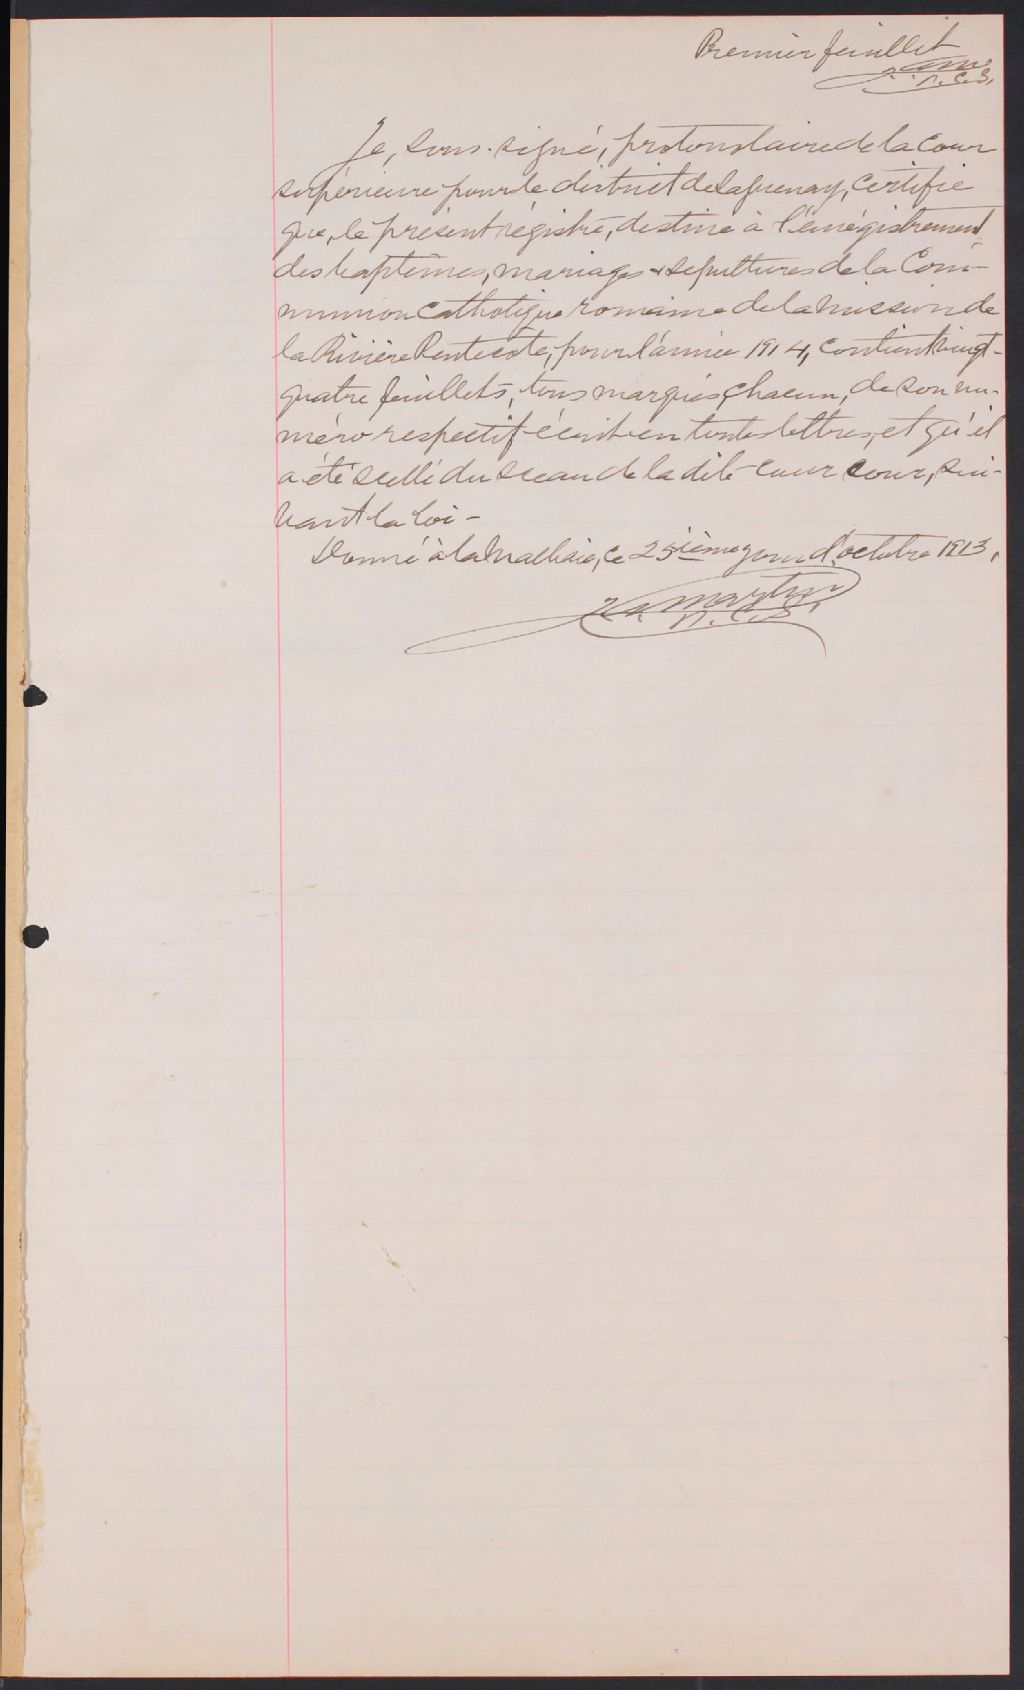 Premier feuillet
P.C.S.
Je, sous-signé, protonotaire de la Cour
supérieure pour le district de Saguenay, certifie
que, le présent régistre, destiné à l'énrégistrement
des baptêmes, mariages & sépultures de la Com-
munion Catholique romaine de la mission de
la Rivière Pentecôte, pour l'année 1914, contient vingt-
quatre feuillets, tous marqués, chacun, de son nu-
méro respectif écrit en toutes lettres, et qu'il
a été scellé du sceau de la dite cour cour, sui-
vant la loi -
Donné à la Malbaie, ce 25ième jour d'octobre 1913,
P.C.S.